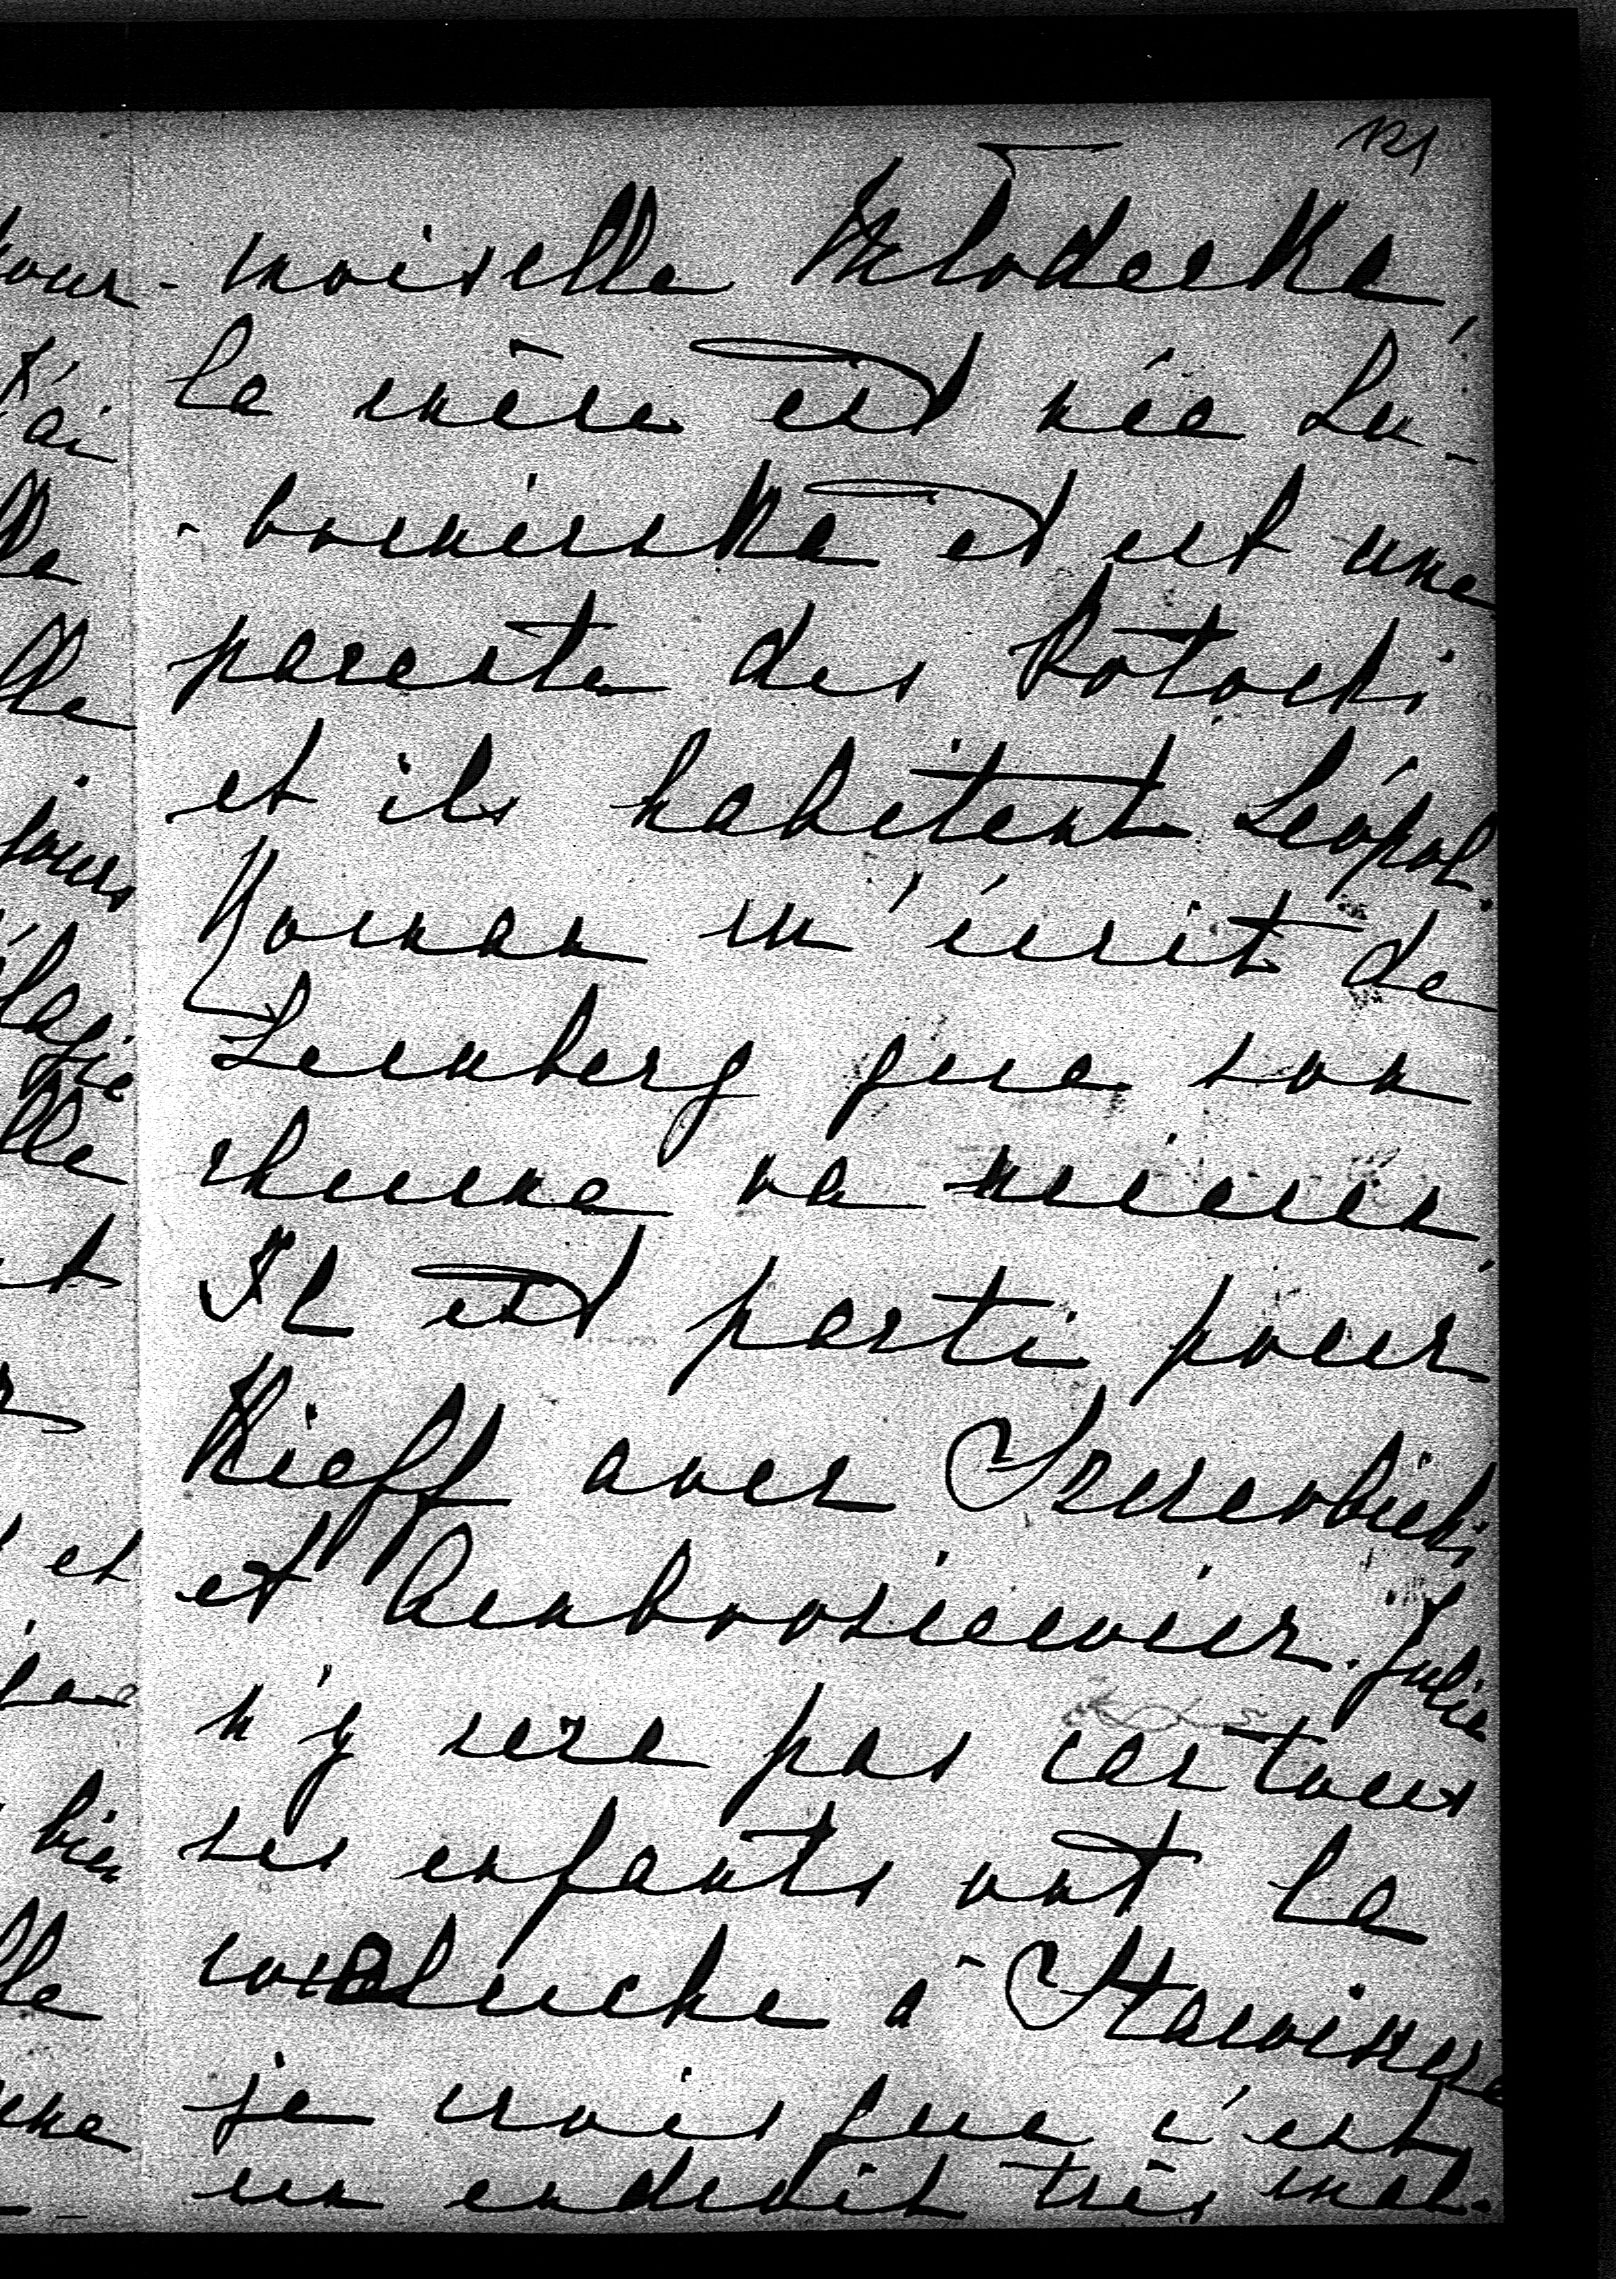 121
moiselle Młodecka,
la mère est née Lu-
-bomirska et est une
parente des Potocki
et ils habitent Léopol.
Roman m'écrit de
Lemberg que son
rhume va mieux.
Il est parti pour
Kieff avec
et Julie
n'y sera pas car tous
ses enfants ont la
coqueluche à
je crois que c'est
un endroit très mal-